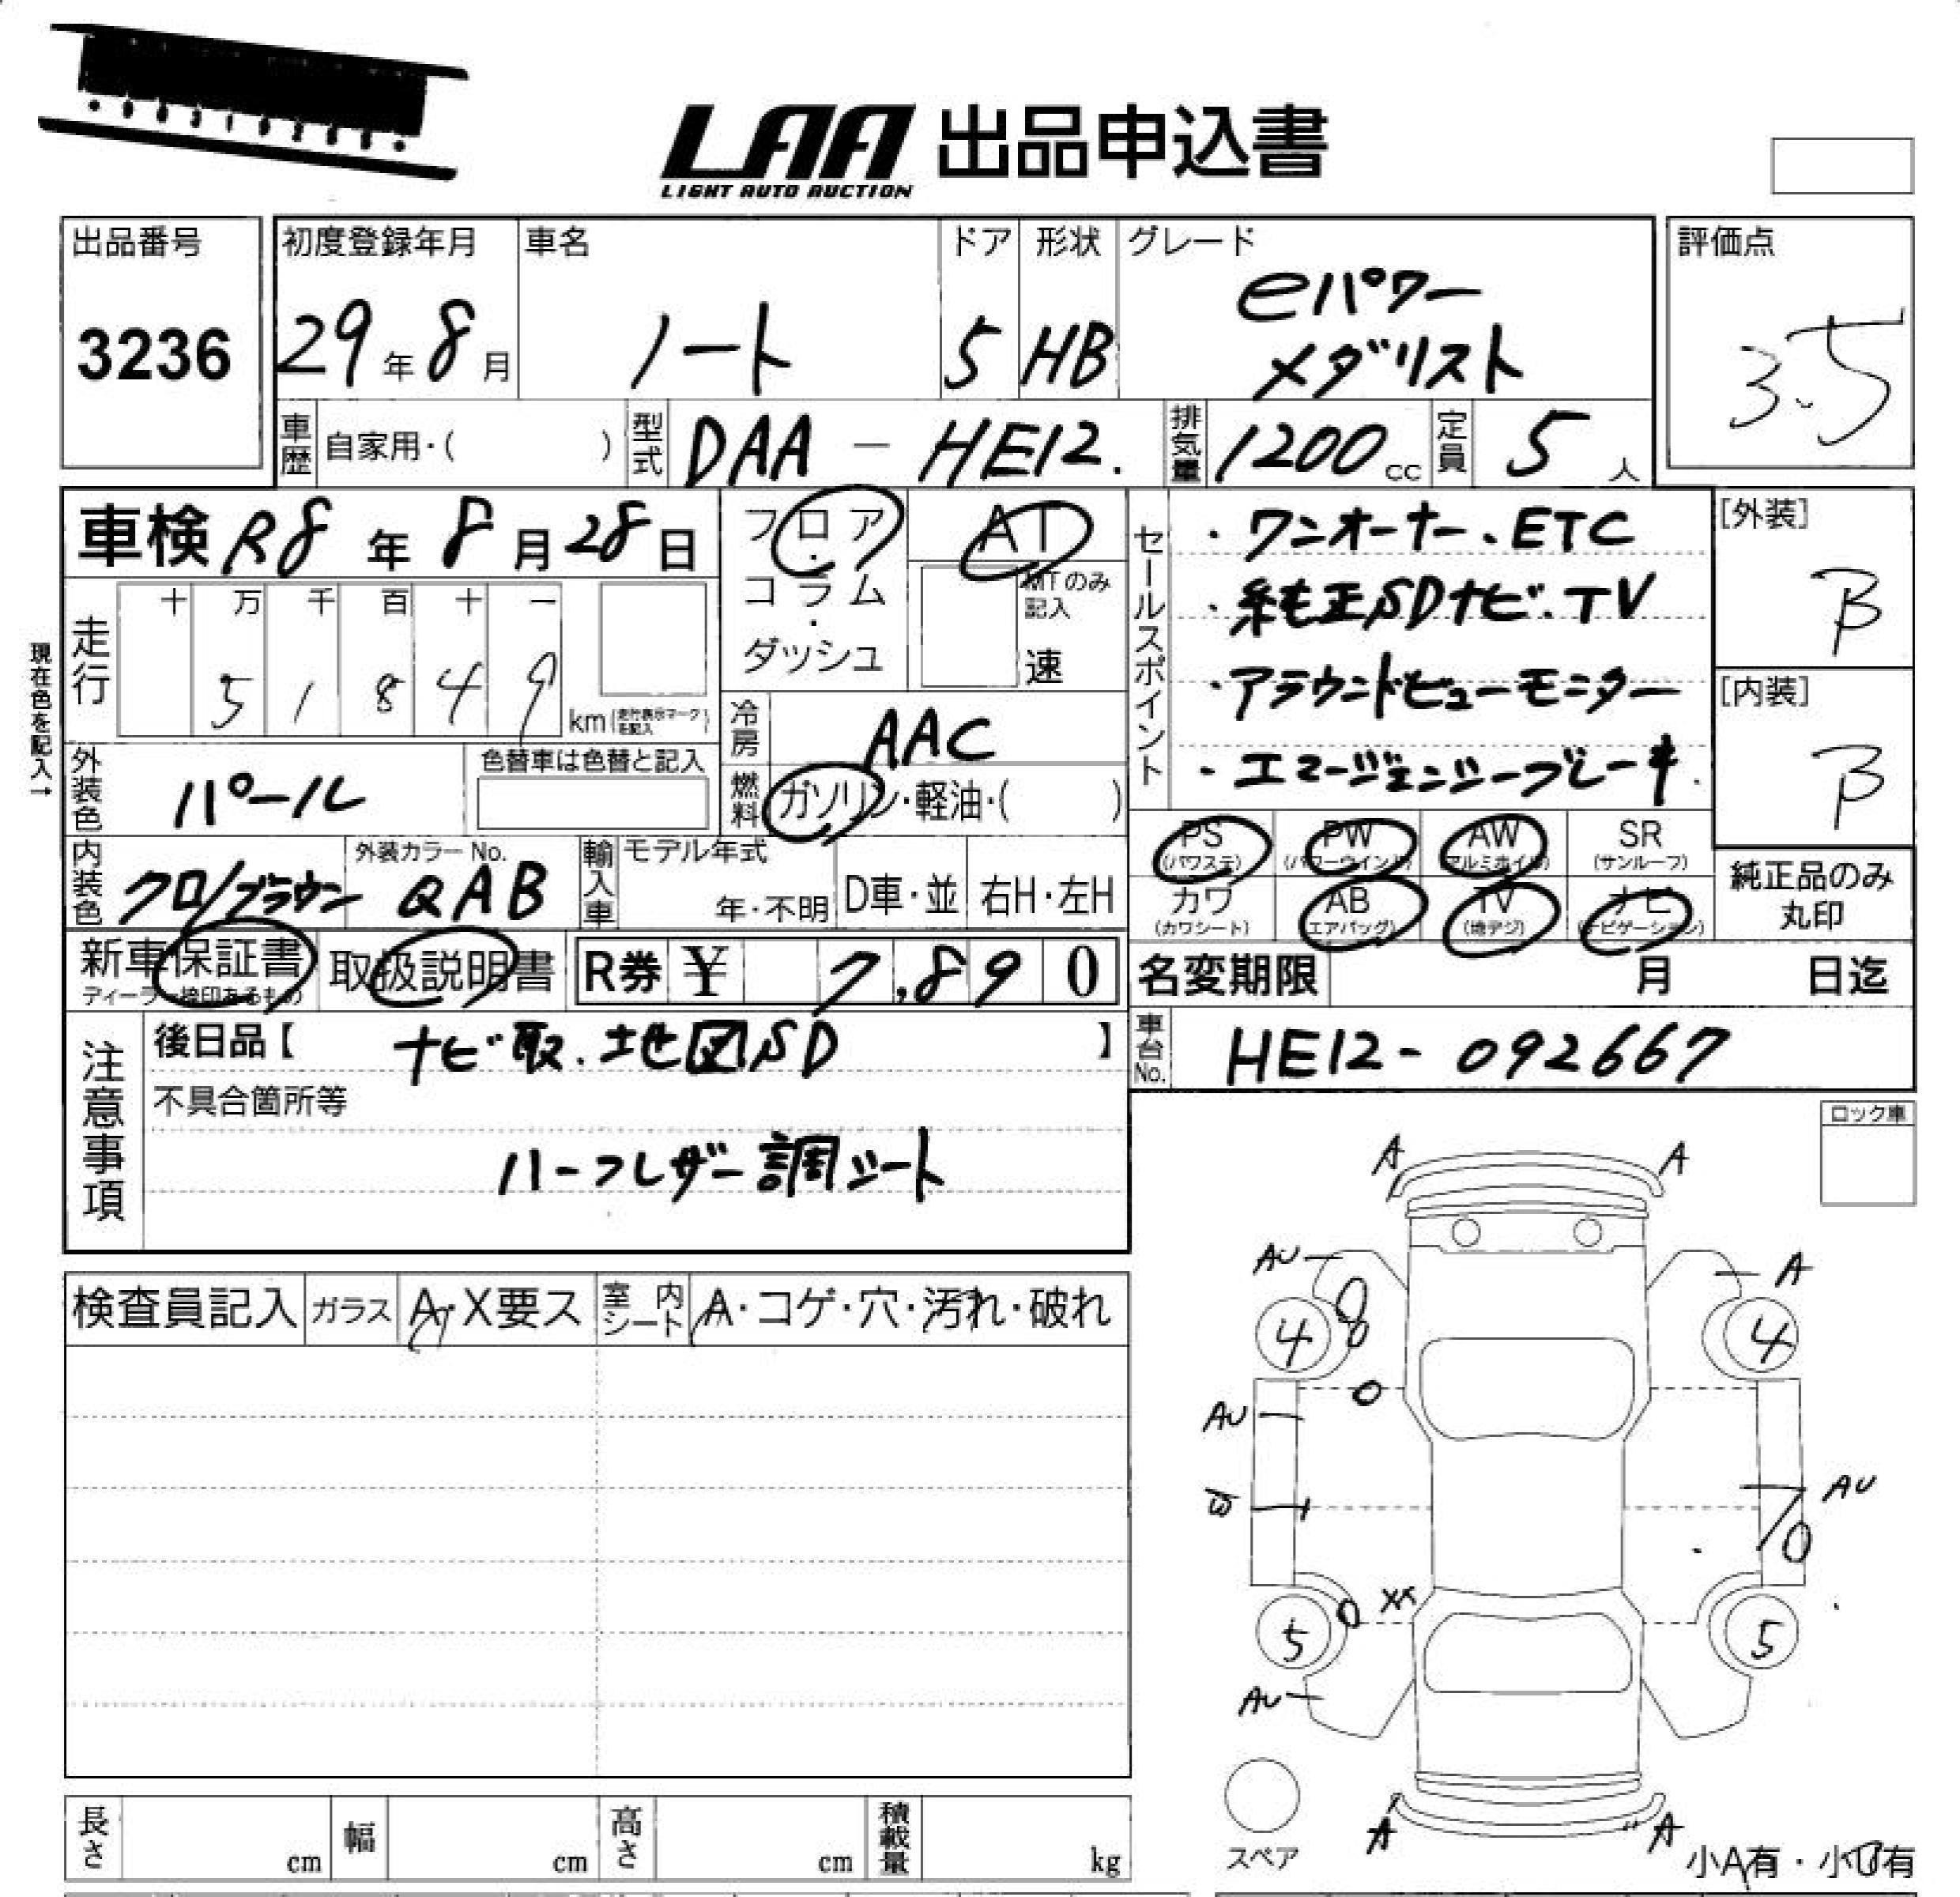 LAA 出品申込書
LIGHT AUTO AUCTION
出品番号
3236
初度登録年月
29年8月
車名
ノート
ドア
5
形状
HB
グレード
eパワー
メダリスト
評価点
3.5
車歴 自家用・( )
型式 DAA - HE12.
排気量 1200cc
定員 5人
車検 R8年8月28日
フロア・コラム・ダッシュ
AT
MTのみ記入
速
セールスポイント
・ワンオーナー、ETC
・純正SDナビ.TV
・アラウンドビューモニター
・エマージェンシーブレーキ.
[外装]
B
[内装]
B
現在色を記入→
走行
十 万 千 百 十 一
5 1 8 4 9
km(走行表示マークを記入)
冷房 AAC
燃料 ガソリン・軽油・( )
外装色 パール
色替車は色替と記入
内装色 クロ/ブラウン
外装カラーNo.
QAB
輸入車
モデル年式
年・不明
D車・並
右H・左H
PS (パワステ)
PW (パワーウインド)
AW (アルミホイル)
SR (サンルーフ)
カワ (カワシート)
AB (エアバッグ)
TV (地デジ)
ナビ (ナビゲーション)
純正品のみ
丸印
新車保証書
ディーラー捺印あるもの
取扱説明書
R券 ¥ 7,890
名変期限 月 日迄
注意事項
後日品【 ナビ取.地図SD 】
不具合箇所等
ハーフレザー調シート
車台No. HE12-092667
ロック車
検査員記入
ガラス A・X要ス
室内シート A・コゲ・穴・汚れ・破れ
A A
AU A
4 4
AU
AU
5 XX 5
AU
A A
スペア
小A有・小U有
長さ cm
幅 cm
高さ cm
積載量 kg